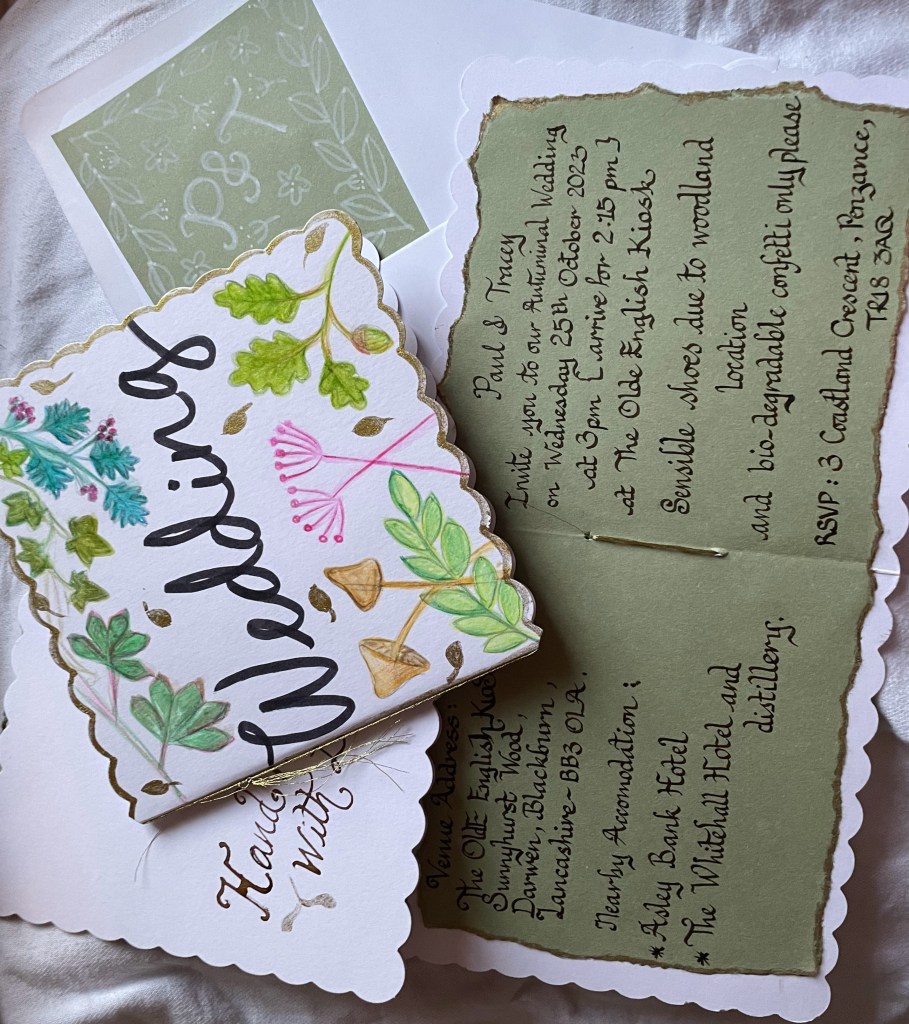 P & T
Wedding
Hand
With
Venue Address:
The Olde English
Sunnyhurst Wood,
Darwen, Blackburn,
Lancashire ~ BB3 0LA.
Nearby Accomodation :
* Asley Bank Hotel
* The Whitehall Hotel and
distillery.
Paul & Tracey
Invite you to our Autuminal Wedding
on Wednesday 25th October 2023
at 3pm { arrive for 2:15 pm }
at The Olde English Kiosk
Sensible shoes due to woodland
location
and bio-degradable confetti only please
RSVP : 3 Coastland Crescent, Penzance,
TR18 3AQ